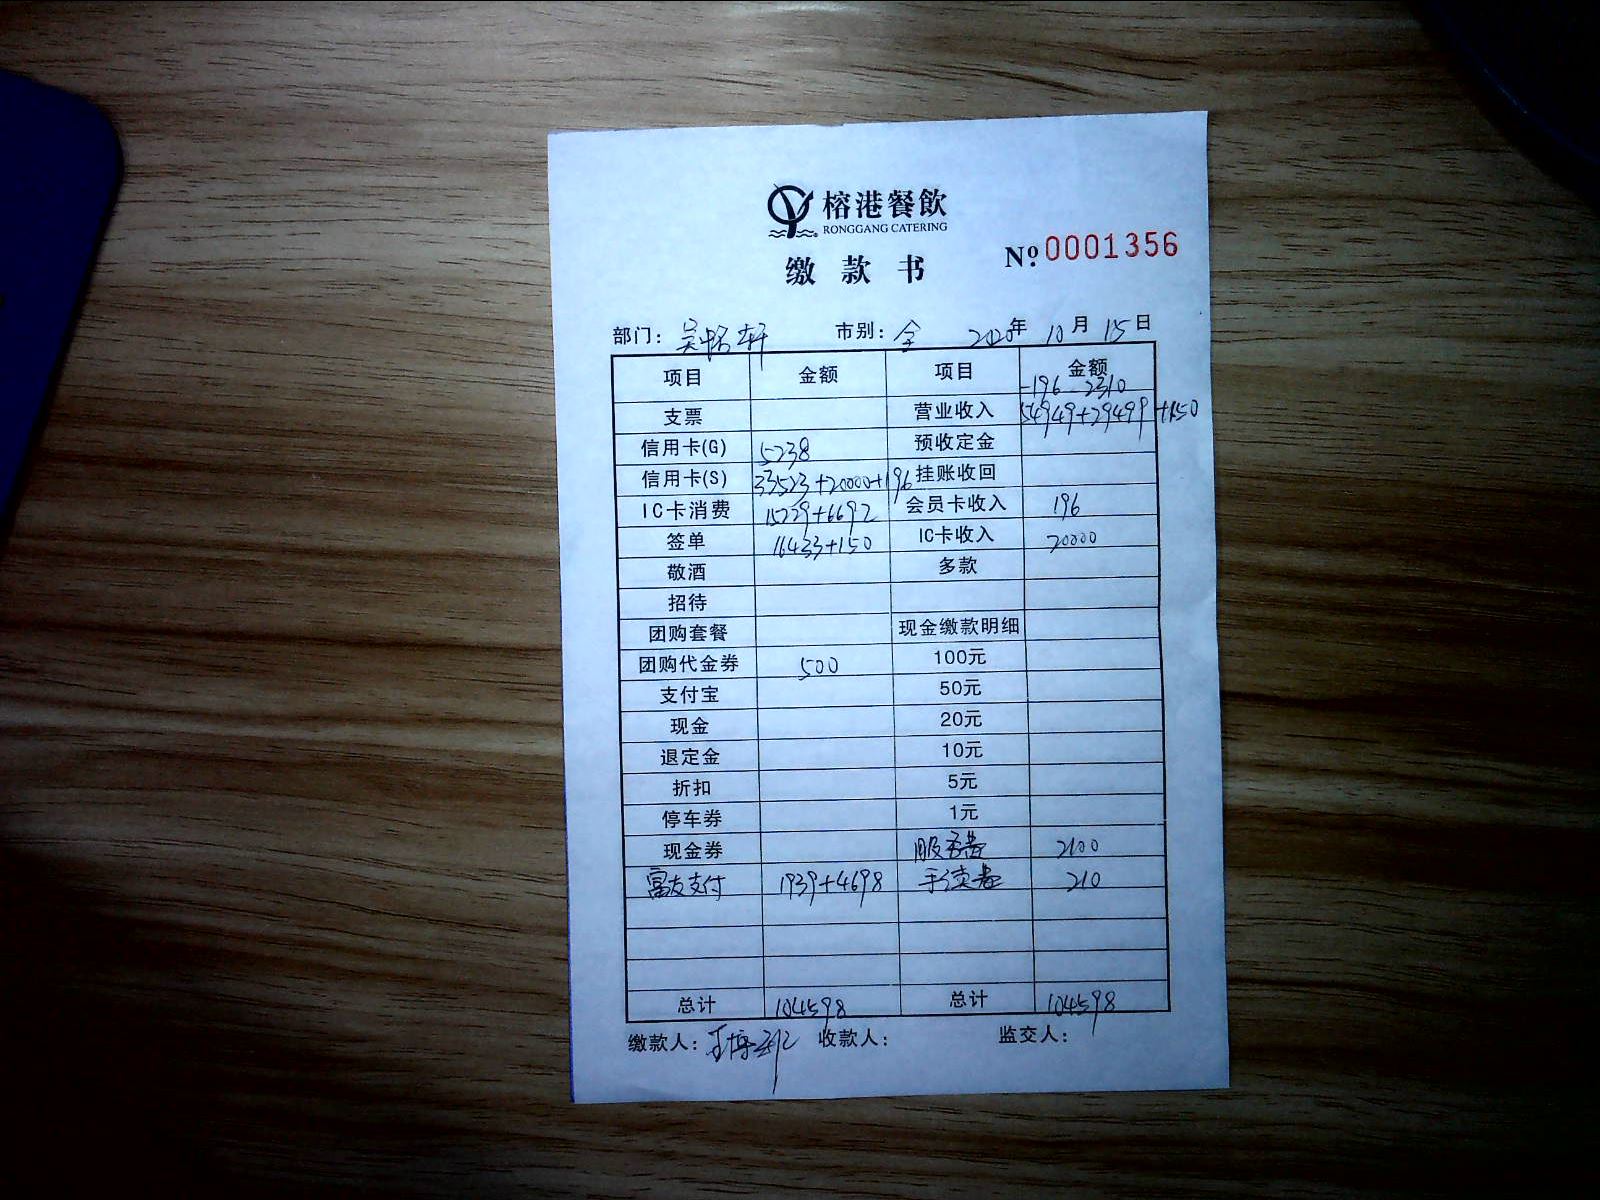 榕港餐飲
RONGGANG CATERING
缴款书
Nº 0001356
部门: 市别: 全 2020年 10月 15日
项目 金额 项目 金额
-196 -2310
支票 营业收入 54949+29499+150
信用卡(G) 5238 预收定金
信用卡(S) 33523+20000+196 挂账收回
IC卡消费 15229+6692 会员卡收入 196
签单 16433+150 IC卡收入 20000
敬酒 多款
招待
团购套餐 现金缴款明细
团购代金券 500 100元
支付宝 50元
现金 20元
退定金 10元
折扣 5元
停车券 1元
现金券 服务费 2100
富友支付 1939+4698 手续费 210
总计 104598 总计 104598
缴款人: 收款人: 监交人: